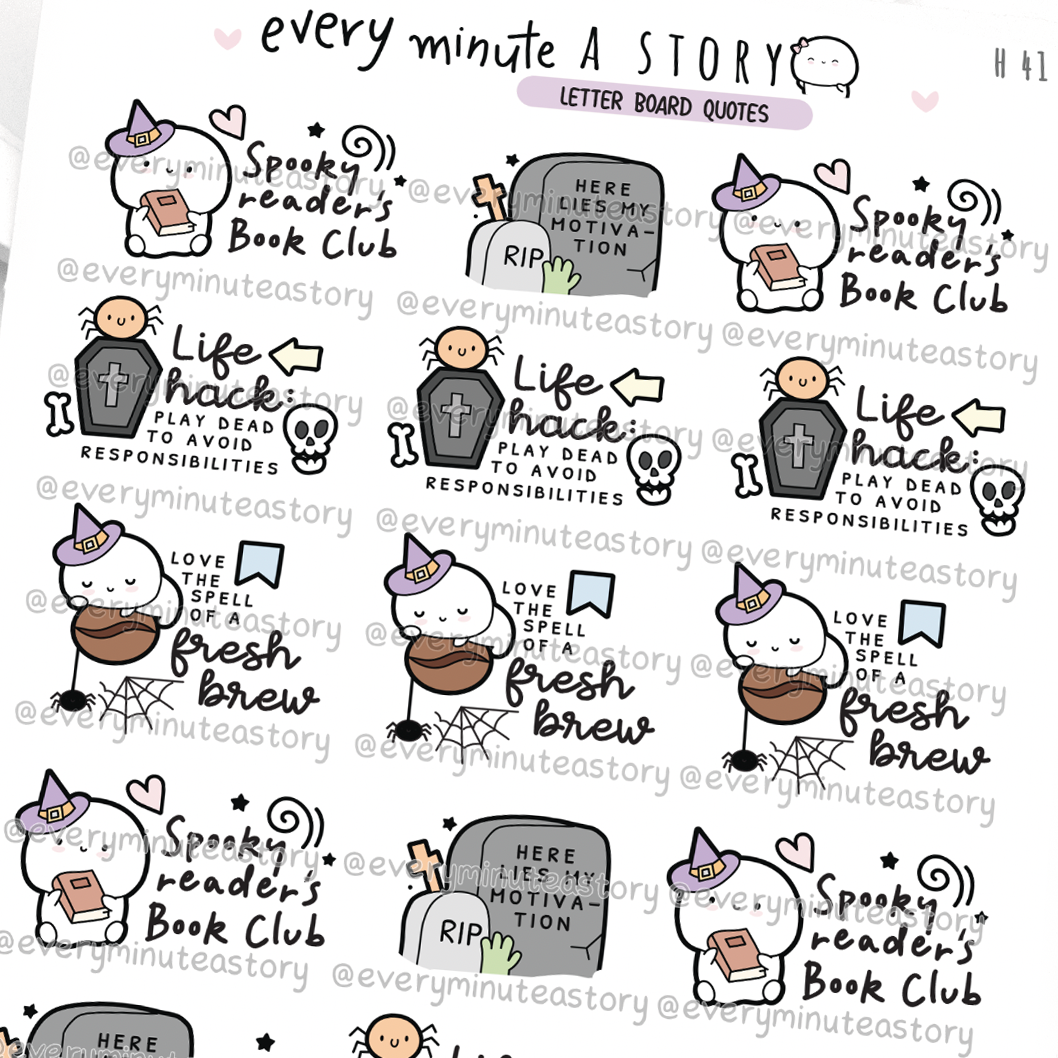 every minute A STORY
H 41
LETTER BOARD QUOTES
Spooky
reader's
Book Club
HERE
LIES MY
MOTIVA-
TION
RIP
Spooky
reader's
Book Club
@everyminuteastory @everyminuteastory @everyminuteastory
@everyminuteastory @everyminuteastory @everyminuteastory
Life
hack:
PLAY DEAD
TO AVOID
RESPONSIBILITIES
Life
hack:
PLAY DEAD
TO AVOID
RESPONSIBILITIES
Life
hack:
PLAY DEAD
TO AVOID
RESPONSIBILITIES
@everyminuteastory @everyminuteastory @everyminuteastory
@everyminuteastory @everyminuteastory @everyminuteastory
LOVE
THE
SPELL
OF A
fresh
brew
LOVE
THE
SPELL
OF A
fresh
brew
LOVE
THE
SPELL
OF A
fresh
brew
@everyminuteastory @everyminuteastory @everyminuteastory
@everyminuteastory @everyminuteastory @everyminuteastory
Spooky
reader's
Book Club
HERE
LIES MY
MOTIVA-
TION
RIP
Spooky
reader's
Book Club
@everyminuteastory @everyminuteastory @everyminuteastory
@everyminuteastory @everyminuteastory @everyminuteastory
HERE